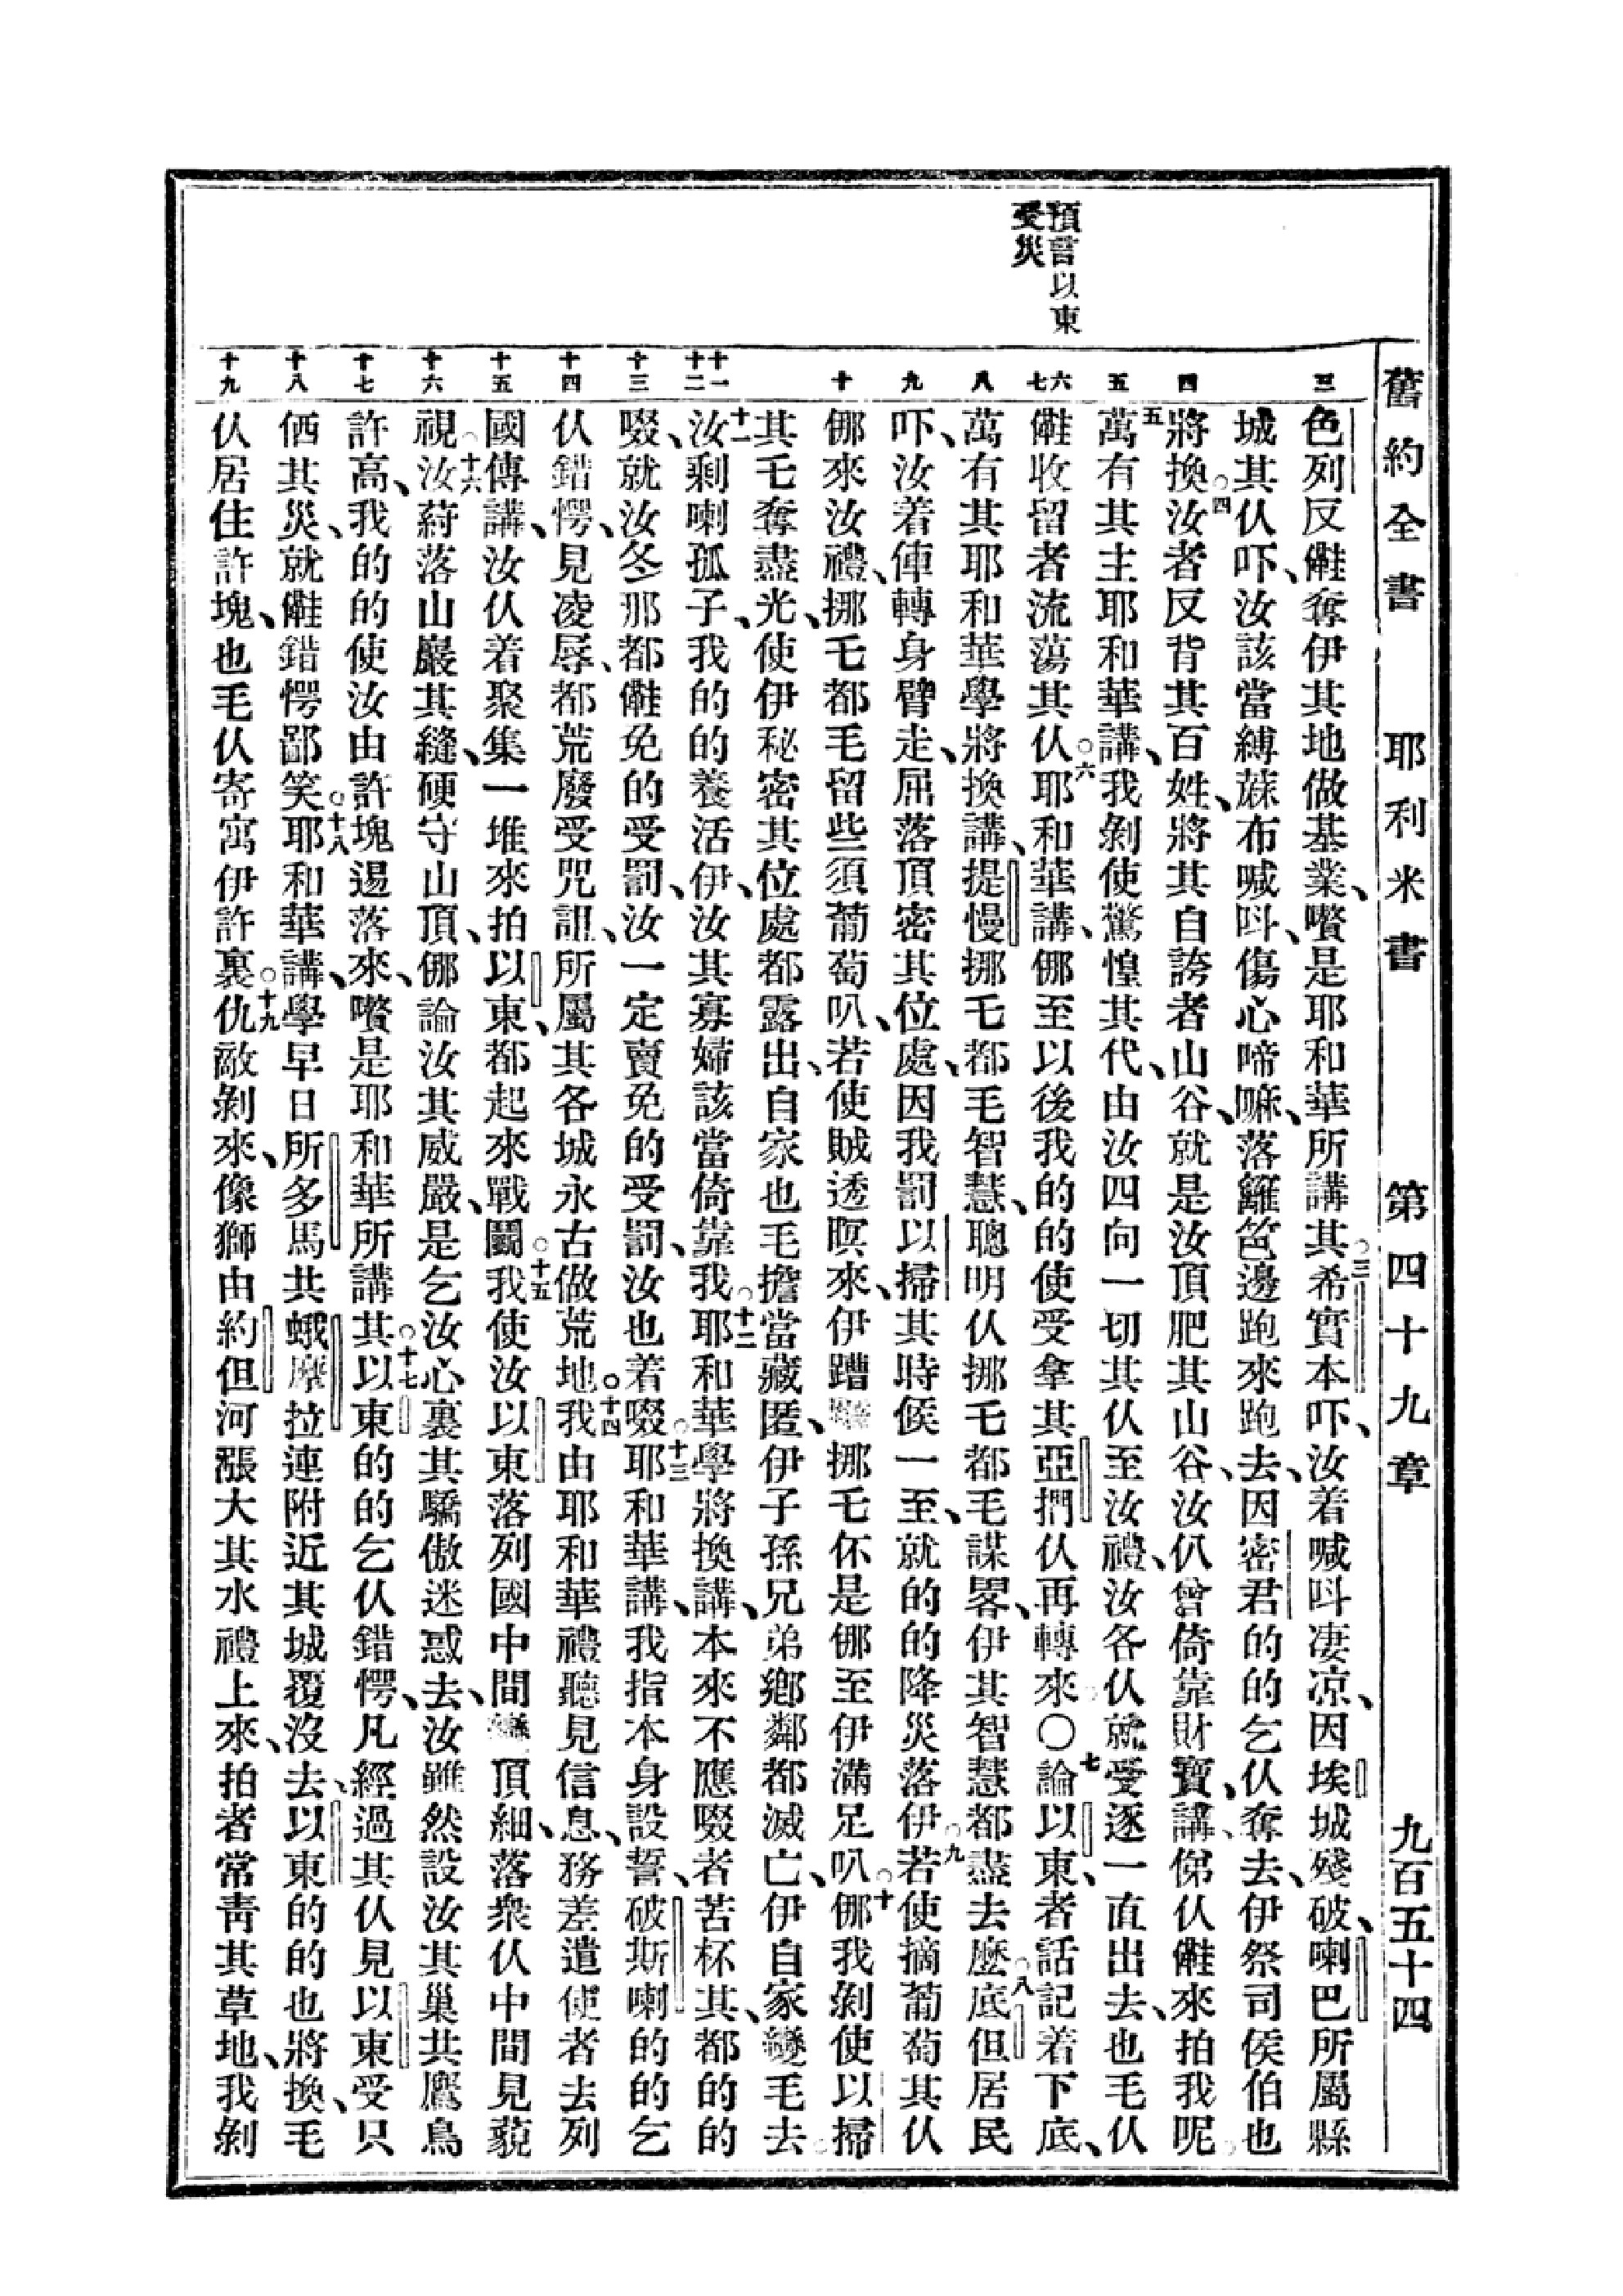 舊約全書 耶利米書 第四十九章 九百五十四
預言以東
受災
三 四 五 六 七 八 九 十 十一 十二 十三 十四 十五 十六 十七 十八 十九
色列反𣍐奪伊其地做基業、嚽是耶和華所講其○三希實本吓、汝着喊呌凄凉、因埃城殘破、喇巴所屬縣
城其仈吓、汝該當縛蔴布喊呌、傷心啼嘛、落籬笆邊跑來跑去、因密君的的乞仈奪去、伊祭司侯伯也
將換○四汝者反背其百姓、將其自誇者山谷、就是汝頂肥其山谷、汝仈曾倚靠財寶、講、俤仈𣍐來拍我呢○
五萬有其主耶和華講、我剝使驚惶其代、由汝四向一切其仈至汝禮、汝各仈就受逐一直出去、也毛仈
𣍐收留者流蕩其仈○六耶和華講、㑚至以後我的的使受拿其亞捫仈再轉來○七論以東者話記着下底、
萬有其耶和華學將換講、提慢挪乇都毛智慧、聰明仈挪乇都毛謀畧、伊其智慧都盡去麽○八底但居民
吓、汝着俥轉身躄走、屈落頂密其位處、因我罰以掃其時候一至、就的的降災落伊○九若使摘葡萄其仈
㑚來汝禮、挪乇都毛留些須葡萄叭、若使賊透暝來、伊蹧挪乇伓是㑚至伊滿足叭○十㑚我剝使以掃
其乇奪盡光、使伊秘密其位處都露出、自家也毛擔當藏匿、伊子孫兄弟鄉鄰都滅亡、伊自家變毛去○
十一汝剩喇孤子、我的的養活伊、汝其寡婦該當倚靠我○十二耶和華學將換講、本來不應啜者苦杯其、都的的
啜、就汝冬那都𣍐免的受罰、汝一定賣免的受罰、汝也着啜○十三耶和華講、我指本身設誓、破斯喇的的乞
仈錯愕、見凌辱、都荒廢受咒詛、所屬其各城永古做荒地○十四我由耶和華禮聽見信息、務差遣使者去列
國傳講、汝仈着聚集一堆來拍以東、都起來戰鬭○十五我使汝以東落列國中間頂細、落衆仈中間見藐
視○十六汝葤落山巖其縫、硬守山頂、㑚論汝其威嚴、是乞汝心裏其驕傲迷惑去、汝雖然設汝其巢共鷹鳥
許高、我的的使汝由許塊逷落來、嚽是耶和華所講其○十七以東的的乞仈錯愕、凡經過其仈見以東受只
㑚其災、就𣍐錯愕鄙笑○十八耶和華講、學早日所多馬共蛾摩拉連附近其城覆沒去、以東的的也將換、毛
仈居住許塊、也毛仈寄寓伊許裏○十九仇敵剝來、像獅由約但河漲大其水禮上來、拍者常青其草地、我剝